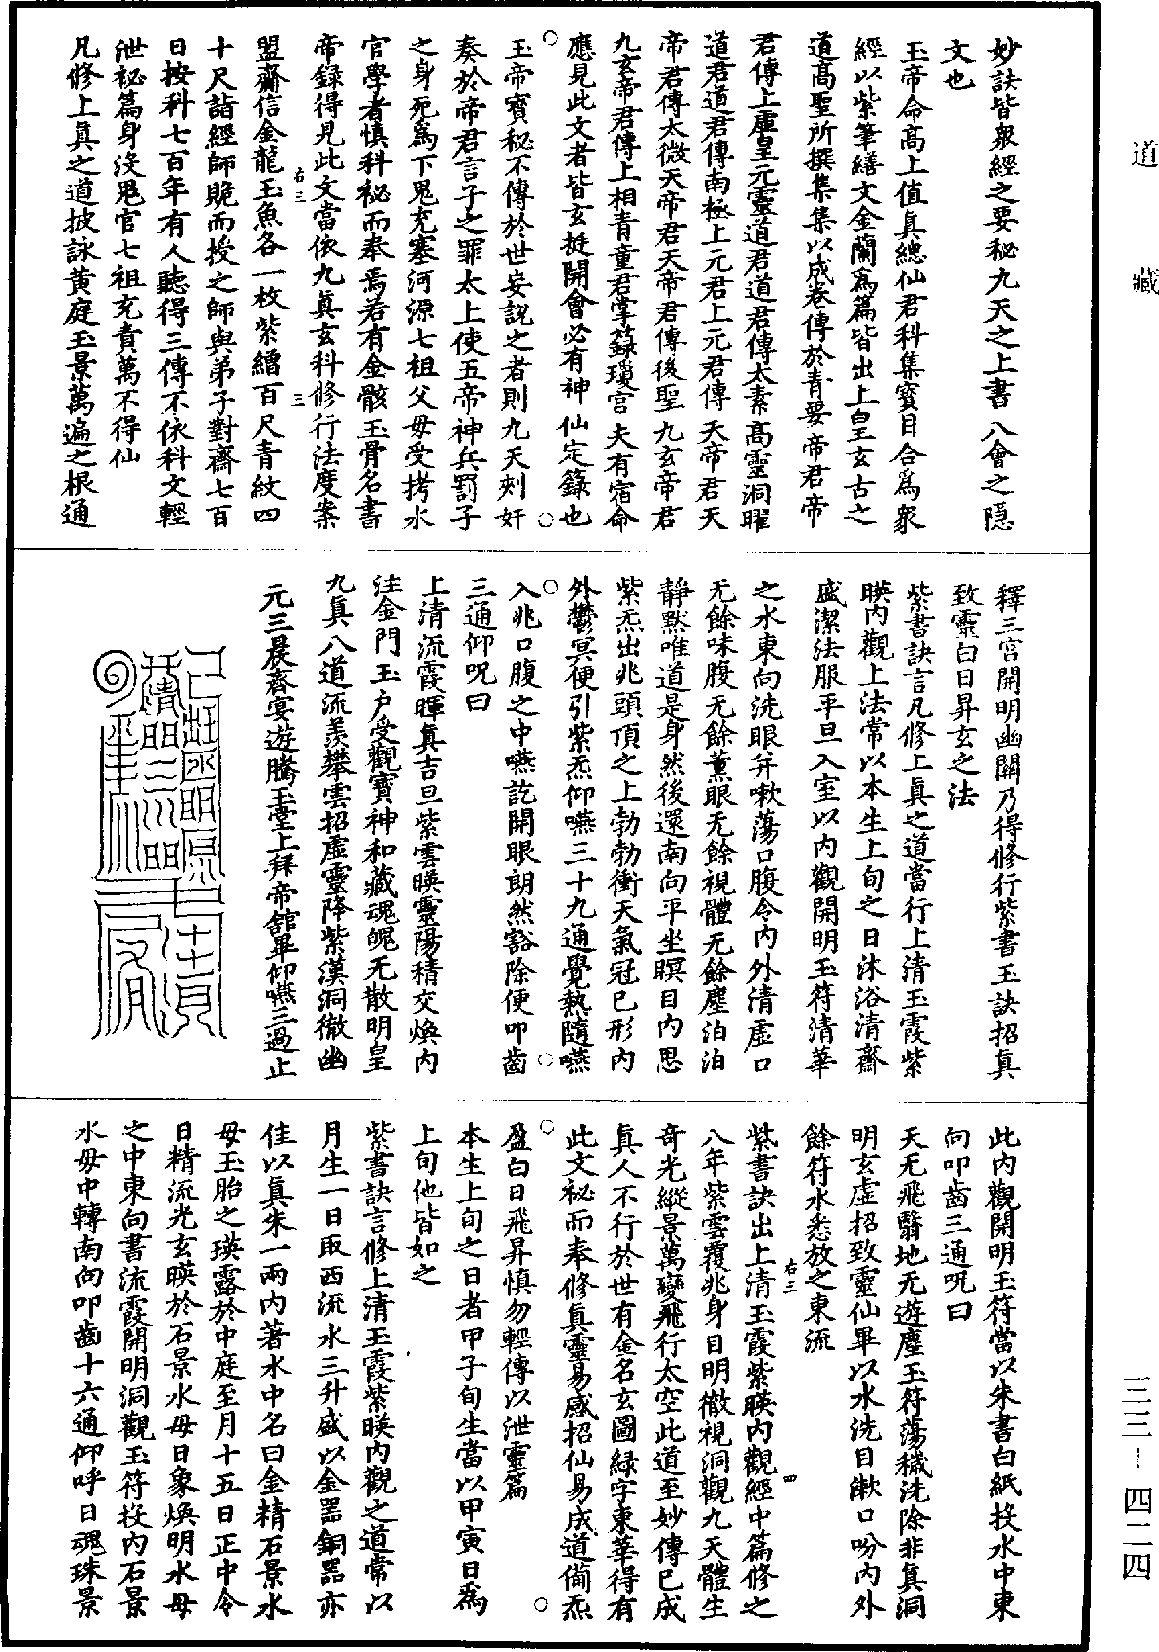 道藏
妙訣皆衆經之要秘九天之上書八會之隱
文也
玉帝命高上值真總仙君科集寶目合爲衆
經以紫筆繕文金蘭爲篇皆出上皇玄古之
道高聖所撰集集以成卷傳於青要帝君帝
君傳上虛皇元靈道君道君傳太素高靈洞曜
道君道君傳南極上元君上元君傳天帝君天
帝君傳太微天帝君天帝君傳後聖九玄帝君
九玄帝君傳上相青童君掌籙瓊宮夫有宿命
應見此文者皆玄挺開會必有神仙定籙也
玉帝寶秘不傳於世妄説之者則九天刾奸
奏於帝君言子之罪太上使五帝神兵罰子
之身死爲下鬼充塞河源七祖父母受拷水
官學者慎科秘而奉焉若有金骸玉骨名書
帝録得見此文當依九真玄科修行法度案
右三 三
盟齋信金龍玉魚各一枚紫繒百尺青紋四
十尺詣經師跪而授之師與弟子對齋七百
日按科七百年有人聽得三傳不依科文輕
泄秘篇身沒鬼官七祖充責萬不得仙
凡修上真之道披詠黃庭玉景萬遍之根通
釋三宮開明幽關乃得修行紫書玉訣招真
致靈白日昇玄之法
紫書訣言凡修上真之道當行上清玉霞紫
暎内觀上法常以本生上旬之日沐浴清齋
盛潔法服平旦入室以内觀開明玉符清華
之水東向洗眼并嗽蕩口腹令内外清虛口
无餘味腹无餘薰眼无餘視體无餘塵泊泊
靜默唯道是身然後還南向平坐瞑目内思
紫炁出兆頭頂之上勃勃衝天氣冠己形内
外鬱冥便引紫炁仰嚥三十九通覺熱隨嚥
入兆口腹之中嚥訖開眼朗然豁除便叩齒
三通仰呪曰
上清流霞暉真吉旦紫雲暎靈陽精交煥内
注金門玉户受觀寶神和藏魂魄无散明皇
九真八道流羨攀雲招虛靈降紫漢洞徹幽
元三晨齊宴遊騰玉堂上拜帝舘畢仰嚥三過止
此内觀開明玉符當以朱書白紙投水中東
向叩齒三通呪曰
天无飛翳地无遊塵玉符蕩穢洗除非真洞
明玄虛招致靈仙畢以水洗目漱口吩内外
餘符水悉放之東流
右三 四
紫書訣出上清玉霞紫暎内觀經中篇修之
八年紫雲覆兆身目明徹視洞觀九天體生
奇光縱景萬變飛行太空此道至妙傳已成
真人不行於世有金名玄圖緑字東華得有
此文秘而奉修真靈易感招仙易成道備炁
盈白日飛昇慎勿輕傳以泄靈篇
本生上旬之日者甲子旬生當以甲寅日爲
上旬他皆如之
紫書訣言修上清玉霞紫暎内觀之道常以
月生一日取西流水三升盛以金器銅器亦
佳以真朱一兩内著水中名曰金精石景水
母玉胎之瑛露於中庭至月十五日正中令
日精流光玄暎於石景水母日象煥明水母
之中東向書流霞開明洞觀玉符投内石景
水母中轉南向叩齒十六通仰呼日魂珠景
三三—四二四